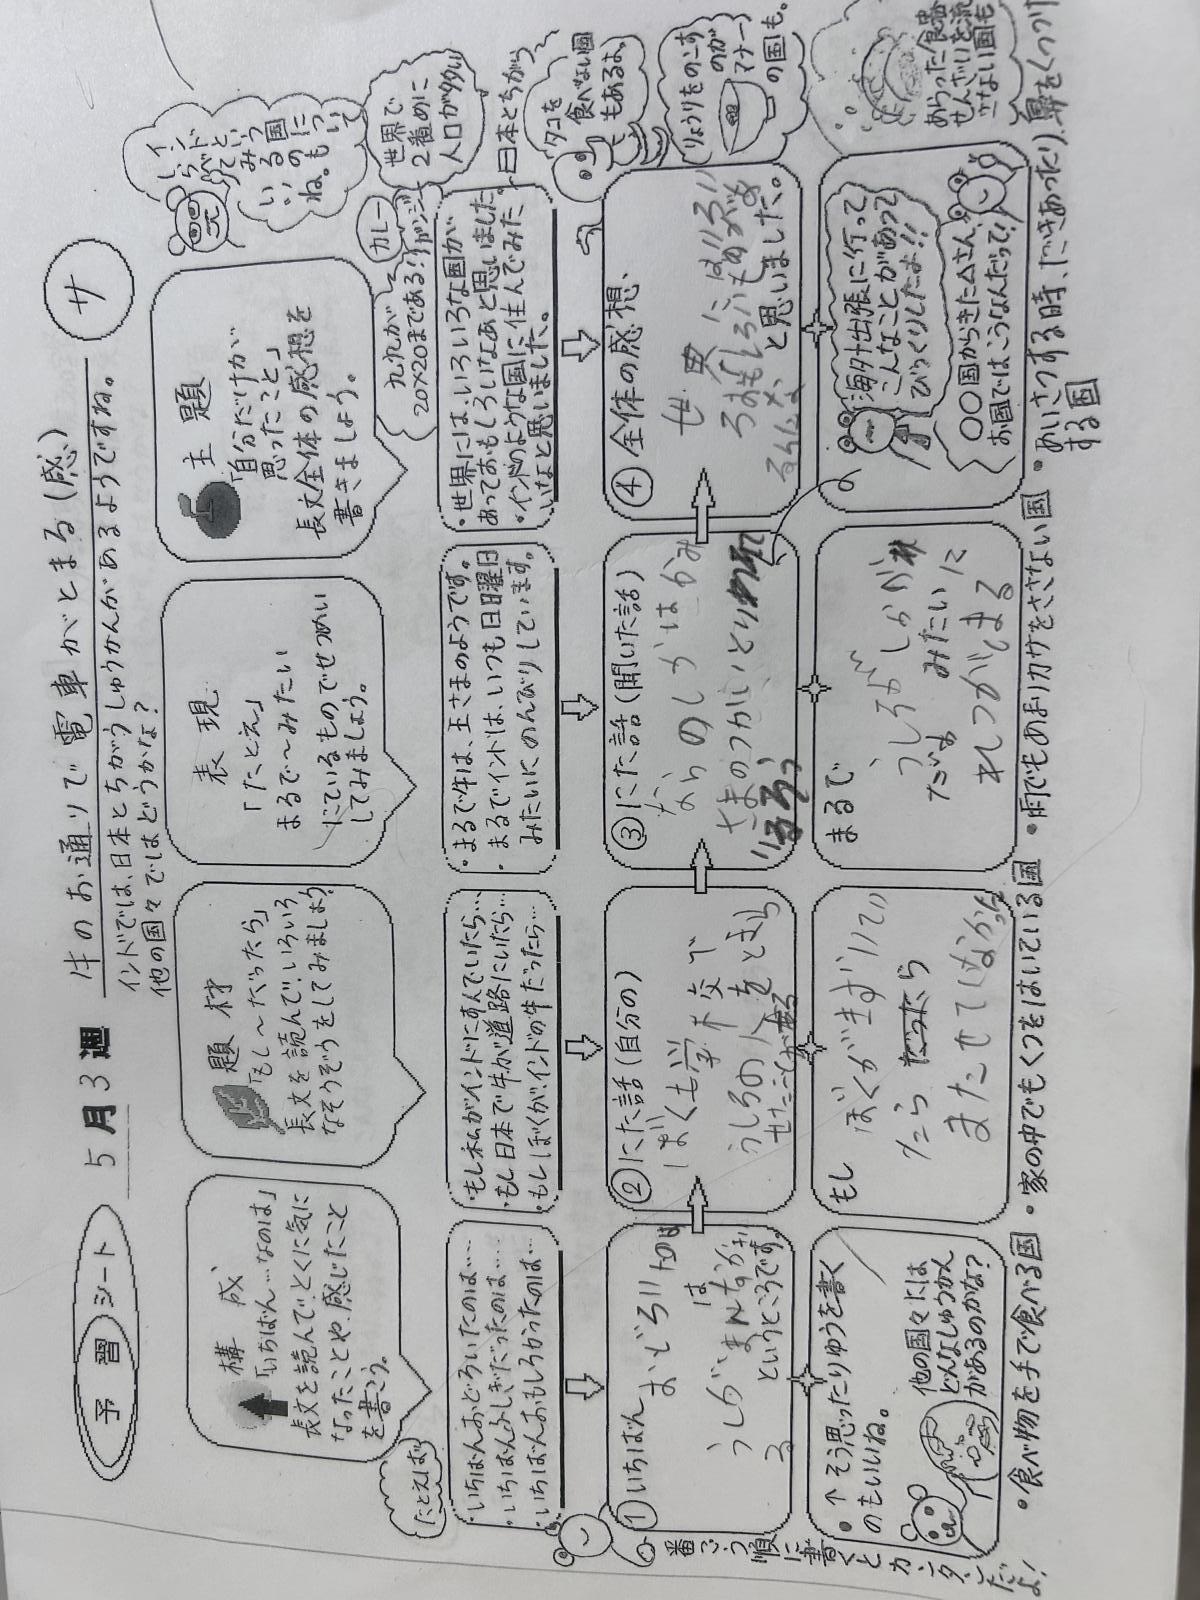 予習シート 5月3週 牛のお通りで電車がとまる(感) サ
インドでは、日本とちがうしゅうかんがあるようですね。
他の国々ではどうかな?
構成
「いちばん…なのは」
長文を読んでとくに気に
なったことや感じたこと
を書こう。
題材
「もし〜だったら」
長文を読んで、いろいろ
なそうぞうをしてみましょう
表現
「たとえ」
まるで〜みたい
にているものでせつめい
してみましょう。
主題
「自分だけが
思ったこと」
長文全体の感想を
書きましょう。
インド
しらべて
いる国
ね。
カレー
九九が
20×20まである!
世界で
2番めに
人口が多い
たとえば
・いちばんおどろいたのは…
・いちばんふしぎだったのは…
・いちばんおもしろかったのは…
・もし私がインドにすんでいたら…
・もし日本で牛が道路にいたら…
・もしぼくがインドの牛だったら…
・まるで牛は、王さまのようです。
・まるでインドは、いつも日曜日
みたいにのんびりしています。
・世界には、いろいろな国が
あっておもしろいなあと思いました。
・インドのような国に住んでみた
いなと思いました。
日本とちがう
タコを
食べない国
もあるよ。
りょうりをのこす
のが
マナー
の国も。
①いちばん
おどろいたのは
うしが
というところです。
②にた話(自分の)
ぼくも学校で
うしろの人をまたせ
③にた話(聞いた話)
ならのしかはかみ
さまのつかいと
④全体の感想、
世界にはいろい
ろおもしろい
と思いました。
・↑そう思ったりゆうを書く
のもいいね。
他の国々には
どんなしゅうかん
があるのかな?
もし
ぼくが
たら
またせてしまった
まるで
うしがしょうが
みたいに
れつがとまる
海外出張に行って
こんなことがあって
びっくりしたよ!!
〇〇国からきた△さん
お国ではこうなんだって!
あらった食器
せんざいを流
さない国も
一番ごう順に書くとカンタンだよ!
・食べ物を手で食べる国
・家の中でもくつをはいている国
・雨でもあまりカサをささない国
・あいさつする時、だきあったり、鼻をくっつけ
する国